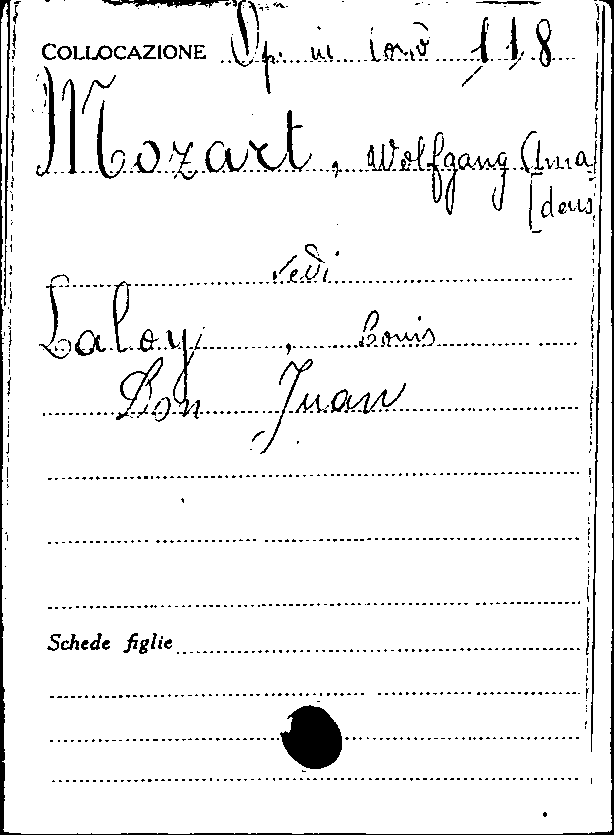 COLLOCAZIONE Op. in cons 118
Mozart, Wolfgang Ama
[deus
vedi
Laloy, Louis
Don Juan
Schede figlie